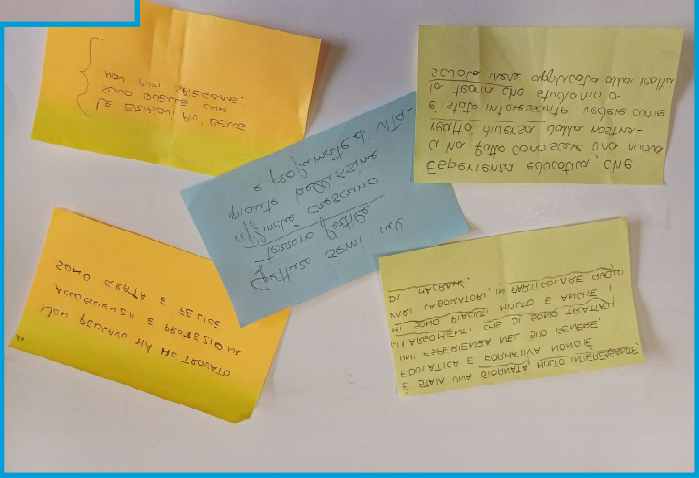 LE EMOZIONI PIÙ BELLE
SONO QUELLE CHE
NON PUOI SPIEGARE.
Esperienza educativa, che
ci ha fatto conoscere una nuova
realtà diversa dalla nostra-
è stato interessante vedere come
la teoria che studiamo a
scuola viene applicata alla realtà
Gettate semi in
terreno fertile
affinché crescano
piante bellissime
e profumate!
NON PENSAVO MA HO TROVATO
ACCOGLIENZA E
SONO GRATA E FELICE
È STATA UNA GIORNATA MOLTO INTERESSANTE,
EDUCATIVA E FORMATIVA NONCHÉ
UN'ESPERIENZA NEL SUO GENERE.
GLI ARGOMENTI CHE SI SONO TRATTATI
MI SONO PIACIUTI MOLTO E ANCHE I
VARI LABORATORI, IN PARTICOLARE QUELLO
DI MACRAMÈ.